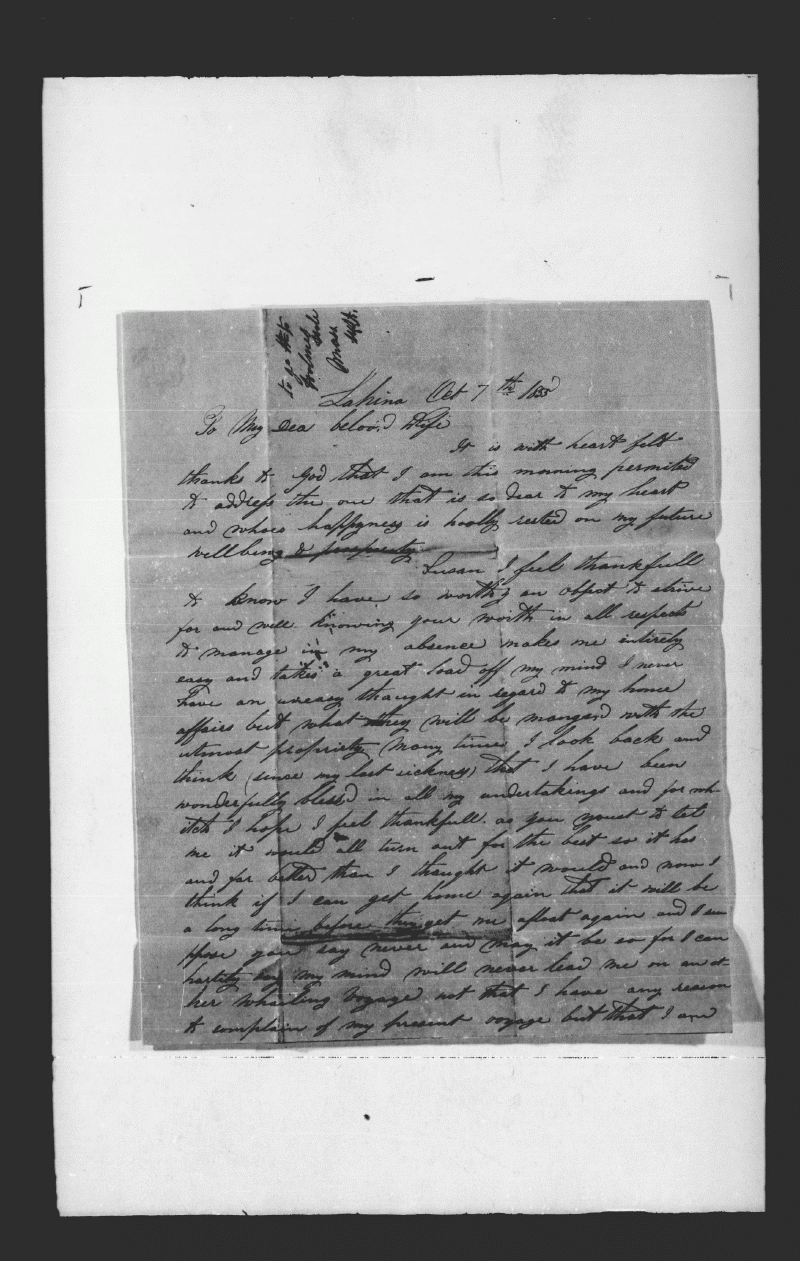 to go
Lahina Oct 7th 1855
To My Dea belovd Wife
It is with heart felt
thanks to God that I am this morning permited
to address the one that is so dear to my heart
and whoes happyness is hoolly rested on my future
wellbeing & prosperity
Susan I feel thankfull
to know I have so worthy an object to strive
for and well knowing your worth in all respects
to manage in my absence makes me entirely
easy and takes a great load off my mind I never
have an uneasy thought in regard to my home
affairs but what they will be mangard with the
utmost propriety Many times I look back and
think (since my last sickness) that I have been
wonderfully blessd in all my undertakings and for wh-
itch I hope I feel thankfull. as you youst to tell
me it would all turn out for the best so it has
and far better than I thought it would and now I
think if I can get home again that it will be
a long time before they get me afloat again and I su
ppose you say never and may it be so for I can
hartily say my mind will never lead me on anot-
her whailing Voyage not that I have any reason
to complain of my present voyage but that I am